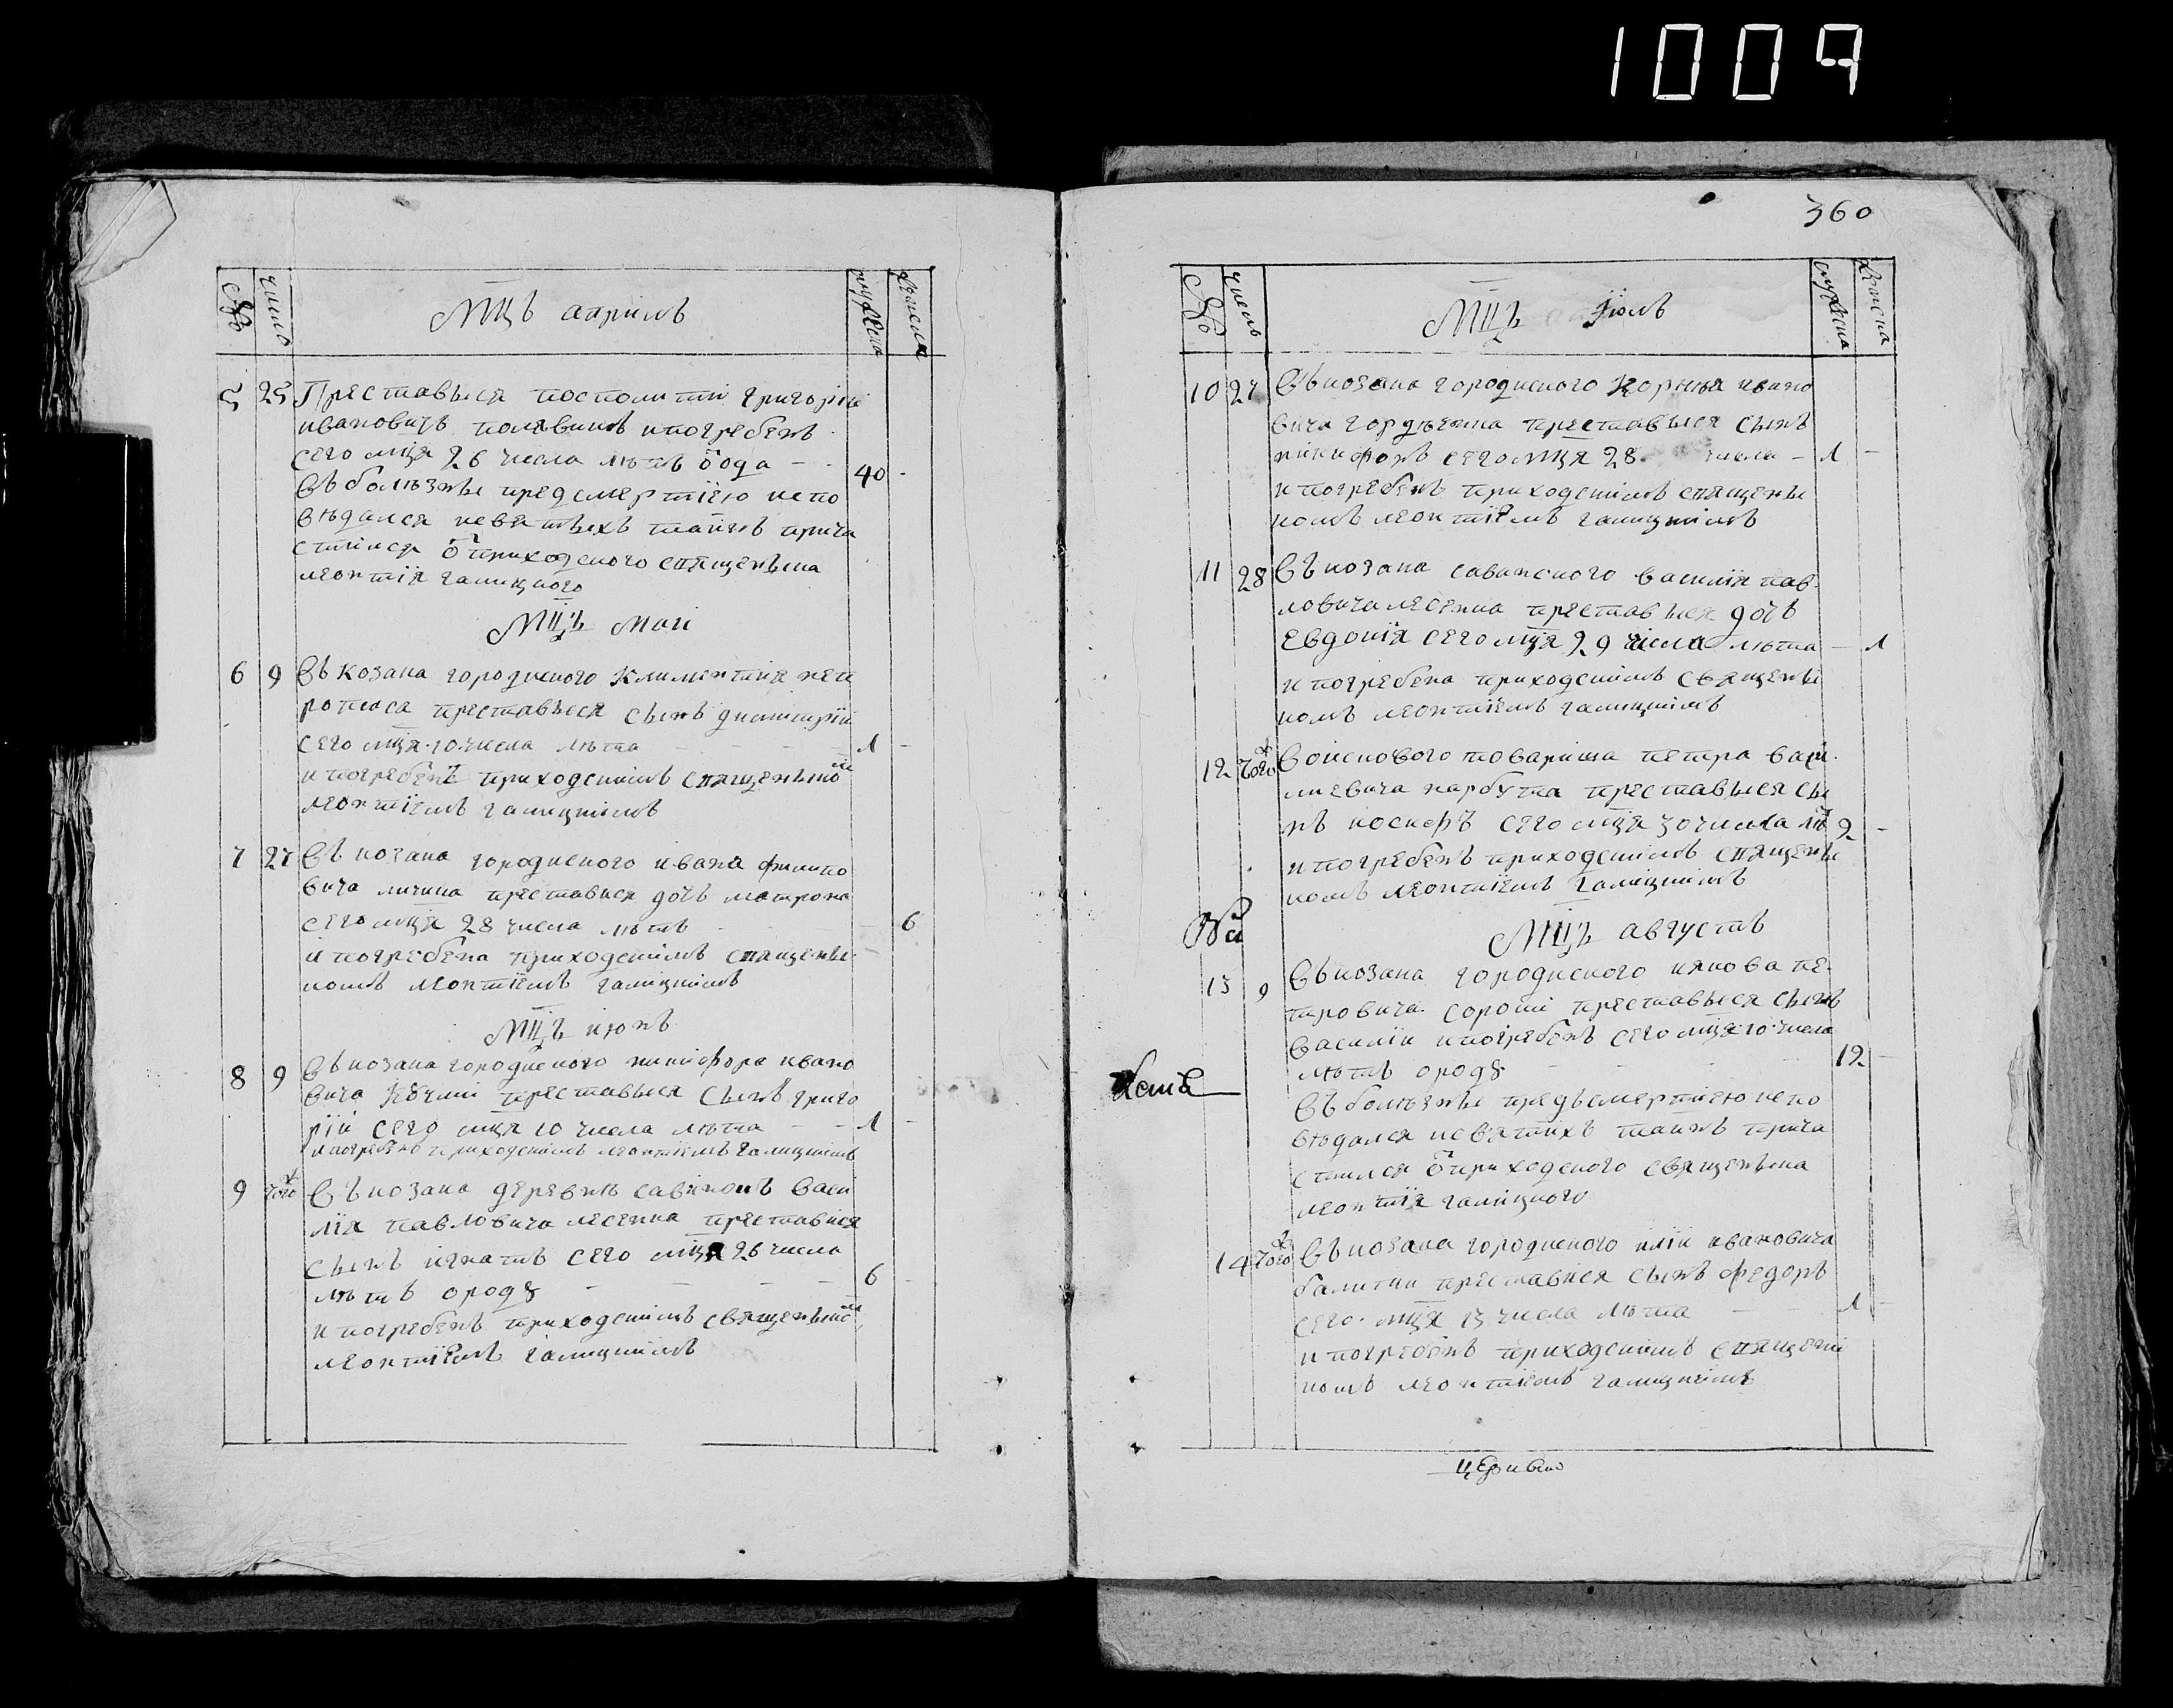 1009
число
мужеска
женска
Мцъ априль
5 25 Преставься посполитій григорій
ивановичъ полявинъ и погребенъ
сего мца 26 числа лѣтъ ѿ ода 40
въ болѣзнѣ предсмертією испо
вѣдался и святыхъ таинъ прича
стился ѿ приходского священька
леонтія галицкого
Мцъ маи
6 9 въ козака городиского климентія
преставься сынъ димитрій
сего мця 10 числа лѣта 1
и погребенъ приходскимъ священько
леонтіемъ галицкимъ
7 27 въ козака городиского ивана филипо
вича личика преставися дочь матрона
сего мця 28 числа лѣтъ 6
и погребена приходскимъ священьи
комъ леонтіемъ галицкимъ
Мцъ июнь
8 9 въ козака городиского никифора ивано
вича преставься сынъ григо
рій сего мця 10 числа лѣта 1
и погребено приходскимъ леонтіемъ галицкимъ
9 того въ козака деревнѣ савинокъ васи
лія павловича лесенка преставися
сынъ игнатъ сего мця 26 числа
лѣтъ ѿроду 6
и погребенъ приходскимъ священьико
леонтіемъ галицкимъ
360
число
мужеска
женска
Мцъ іюль
10 27 въ козака городиского корнѣя ивано
вича гордѣенка преставься сынъ
никифоръ сего мця 28 числа 1
и погребенъ приходскимъ священьи
комъ леонтіемъ галицкимъ
11 28 въ козака савинского василія пав
ловича лесенка преставься дочь
евдокія сего мця 29 числа лѣта 1
и погребена приходскимъ священьи
комъ леонтіемъ галицкимъ
12 того войскового товариша петра васи
лиевича нарбута преставься сы
нъ иосифъ сего мця 30 числа лѣ 2
и погребенъ приходскимъ священьи
комъ леонтіемъ галицкимъ
Мцъ августъ
13 9 въ козака городиского якова пе
тровича сороки преставься сынъ
василіи и погребенъ сего мця 10 числа
лѣтъ ѿроду 12
въ болѣзнѣ предьсмертною испо
вѣдался и святихъ таинъ прича
стился ѿ приходского священьика
леонтія галицкого
14 того въ козака городиского иліи ивановича
преставися сынъ федоръ
сего мця 13 числа лѣта 1
и погребенъ приходскимъ священи
комъ леонтіемъ галицкимъ